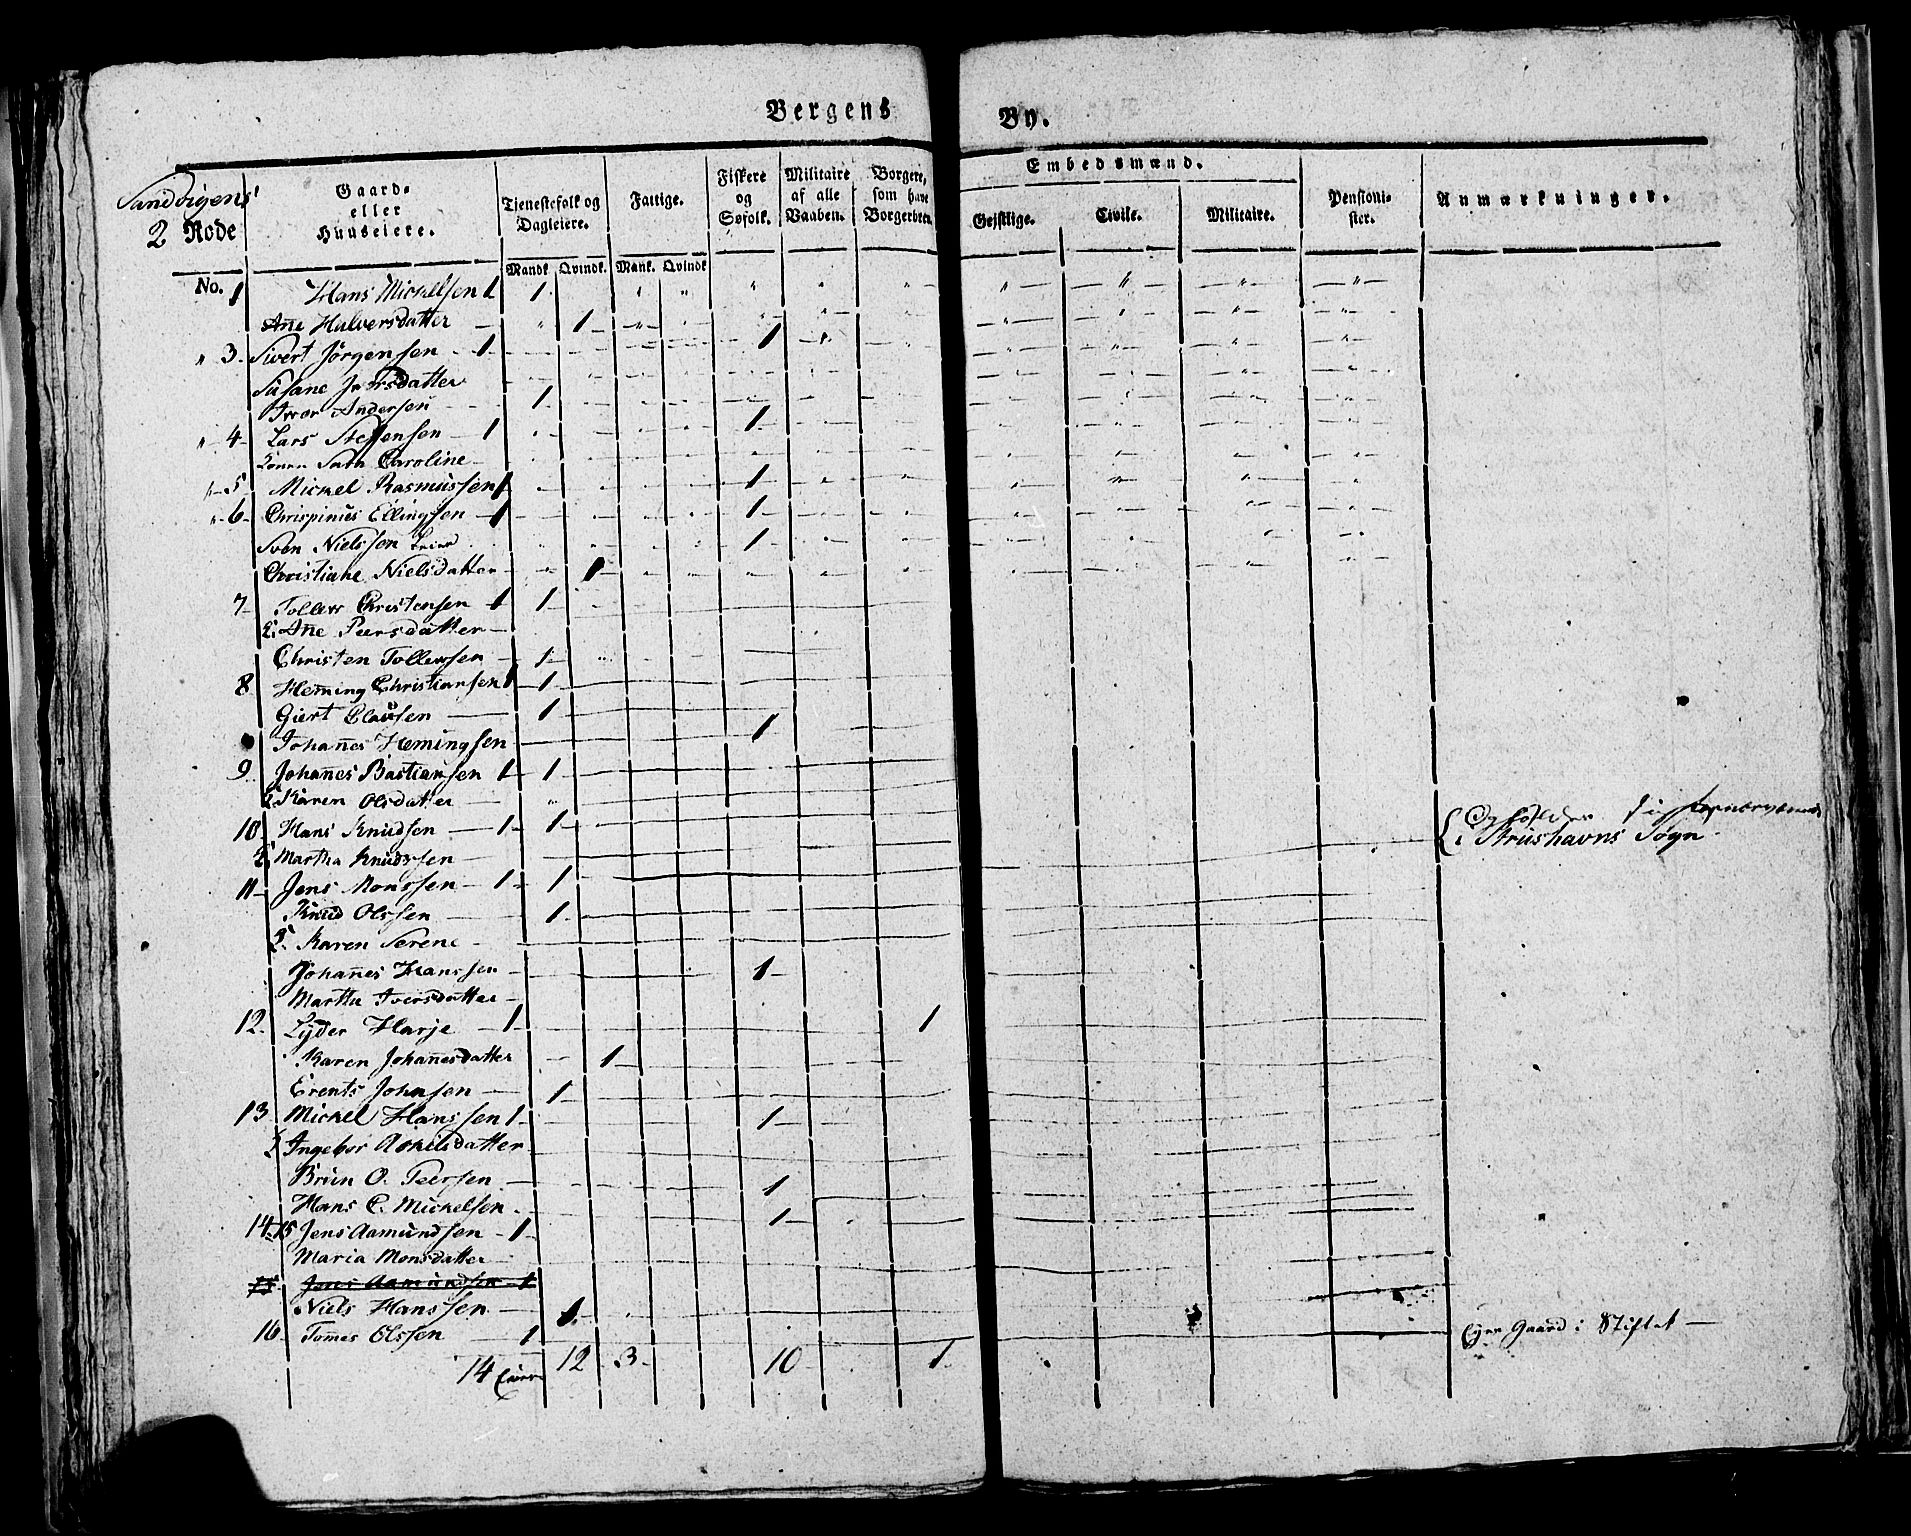 Bergens By.
Sandvigens
2 Rode
Gaard- eller Huuseiere.
Tjenestefolk og Dagleiere.
Fattige.
Fiskere og Søfolk.
Militaire af alle Vaaben.
Borgere, som have Borgerbrev.
Embedsmænd.
Geistlige.
Civile.
Militaire.
Pensionister.
Anmærkninger.
No.
Mandk. Qvindk. Mank. Qvindk.
1 Hans Mickelsen 1 1
Ane Halversdatter 1
3 Sivert Jørgensen 1 1
Susane Iversdatter
Iver Andersen 1
4 Lars Steffensen 1 1
Caroline
5 Mickel Rasmussen 1 1
6 Chrispinus Ellingsen 1 1
Sven Nielssen 1
Christiane Nielsdatter 1
7 Tollew Christensen 1 1
Ane Peersdatter
Christen Tollewsen 1
8 Heming Christiansen 1 1
Giert Clausen 1
Johanes Hemingsen 1
9 Johanes Bastiansen 1 1
Karen Olsdatter
10 Hans Knudsen 1 1
i Strushavns Sogn
Martha Knudssen
11 Jens Monssen 1 1
Knud Olssen 1
Karen Serene
Johanes Hanssen 1
Martha Iversdatter
12 Lyder Harje 1 1
Karen Johanesdatter 1
Erents Johnsen 1
13 Mickel Hanssen 1 1
Ingebor Askilsdatter
Brun O. Peersen 1
Hans C. Mickelsen 1
14 15 Jens Aamundsen 1
Maria Monsdatter
15 Jens Aamundsen 1
Niels Hanssen 1
16 Tomes Olssen 1 Gaard i Stiftet
14 12 3 10 1